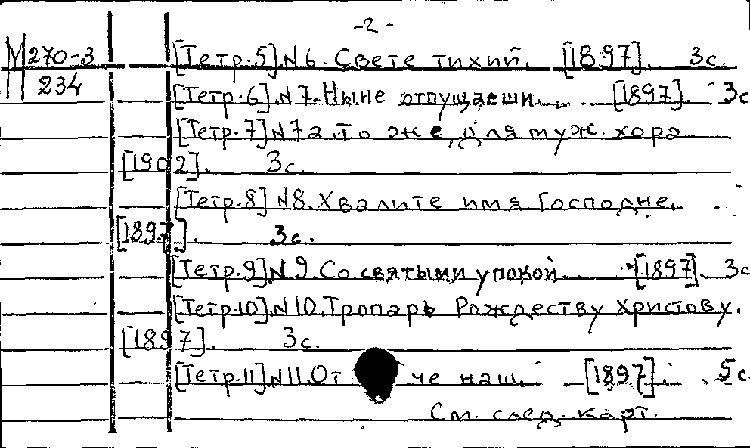 -2-
М 270-3 [Тетр.5] N 6. Свете тихий. [1897]. 3с.
234
[Тетр.6] N 7. Ныне отпущаеши... [1897]. 3с
[Тетр.7] N 7а. То же, для муж. хора
[1902]. 3с.
[Тетр.8] N 8. Хвалите имя Господне.
[1897]. 3с.
[Тетр.9] N 9. Со святыми упокой [1897]. 3с
[Тетр.10] N 10. Тропарь Рождеству Христову.
[1897]. 3с.
[Тетр.11] N 11. От че наш. [1897]. 5с.
См. след. карт.